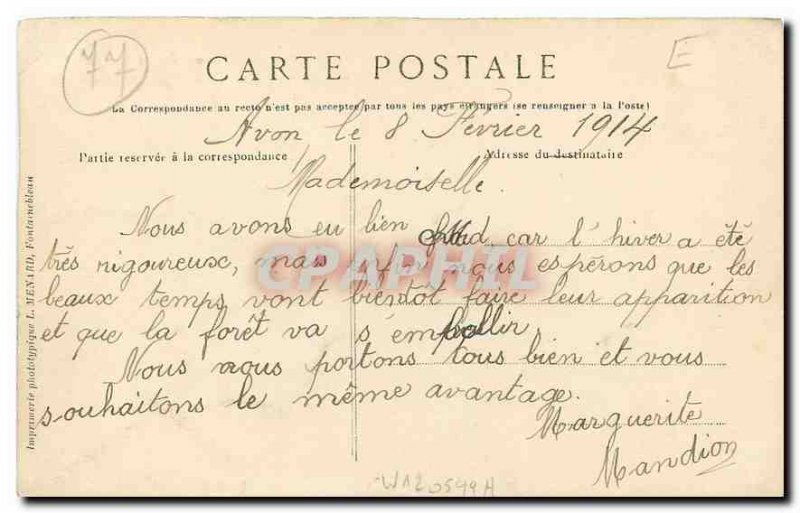 77
E
CARTE POSTALE
La Correspondance au recto n'est pas acceptée par tous les pays étrangers (se renseigner à la Poste)
Avon le 8 Février 1914
Partie reservée à la correspondance
Adresse du destinataire
Mademoiselle.
Nous avons eu bien froid, car l'hiver a été
très rigoureux, mais nous espérons que les
beaux temps vont bientôt faire leur apparition
et que la forêt va s'embellir.
Nous nous portons tous bien et vous
souhaitons le même avantage.
Marguerite
Mandion
Imprimerie phototypique L. MENARD, Fontainebleau
CPAPHIL
WA20599A